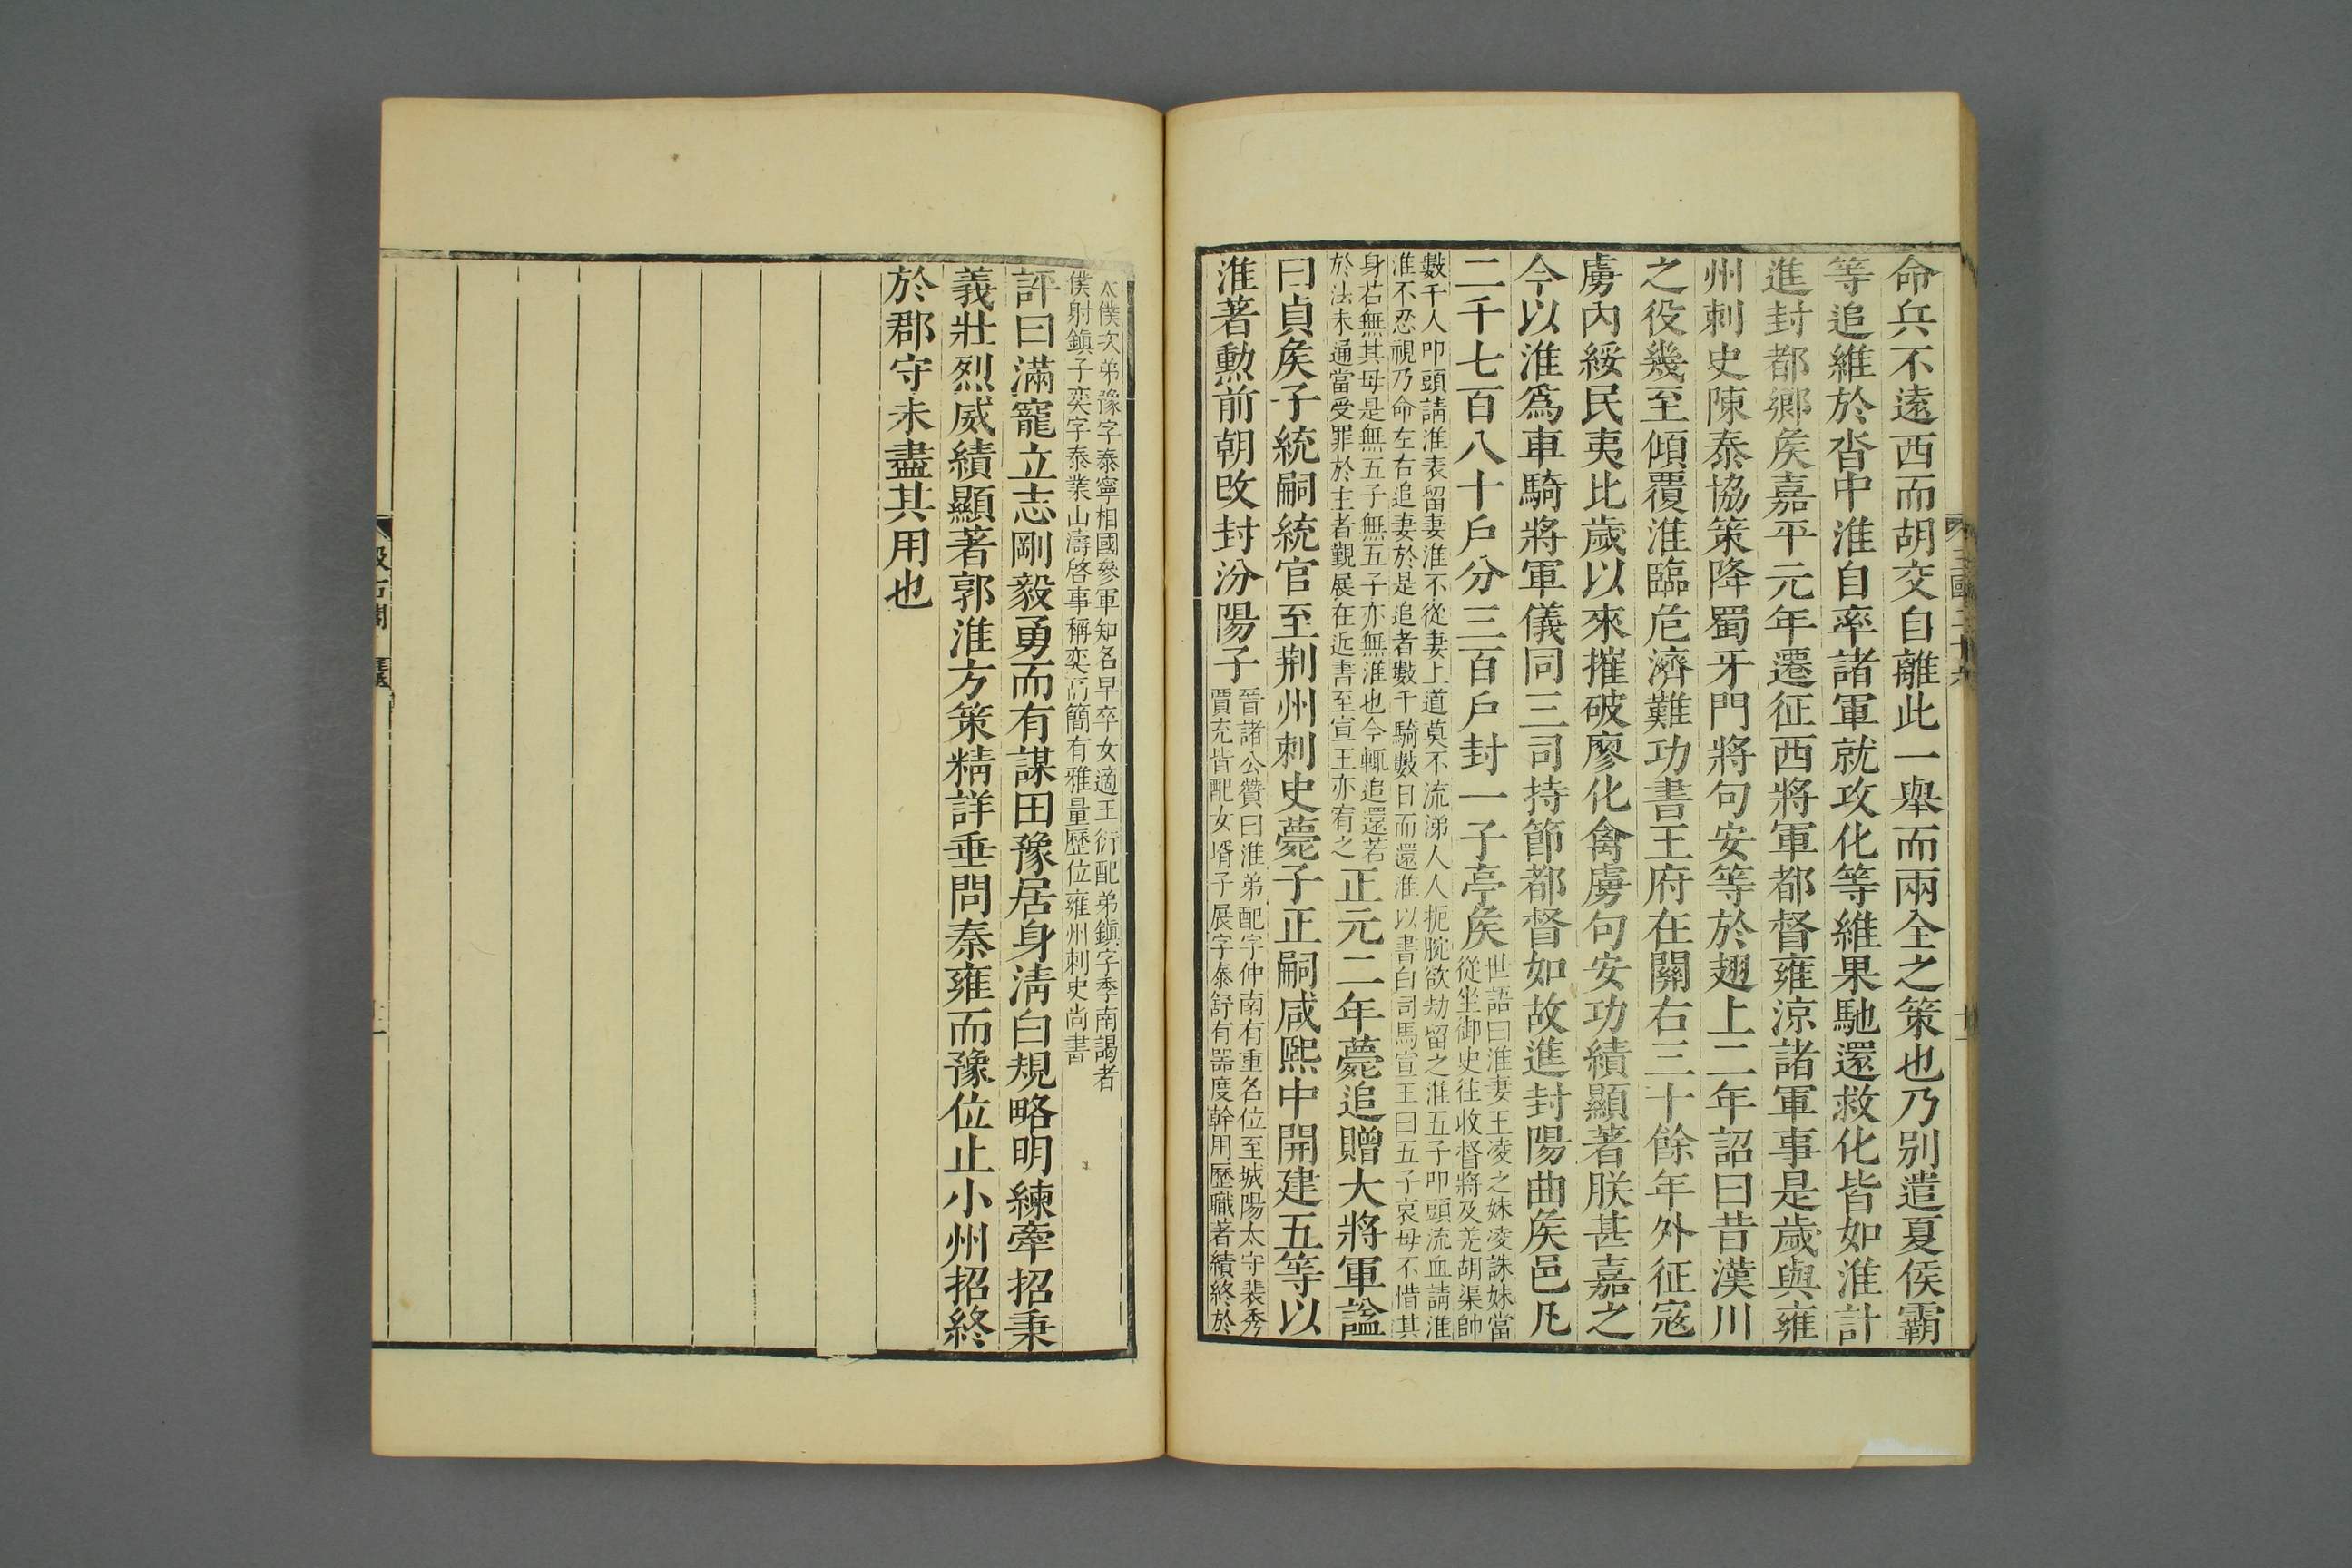 命兵不遠西而胡交自離此一舉而兩全之策也乃别遣夏侯霸
等追維於沓中淮自率諸軍就攻化等維果馳還救化皆如淮計
進封都鄉矦嘉平元年遷征西將軍都督雍涼諸軍事是歲與雍
州刺史陳泰協策降蜀牙門將句安等於翅上二年詔曰昔漢川
之役幾至傾覆淮臨危濟難功書王府在關右三十餘年外征寇
虜內綏民夷比歲以來摧破廖化禽虜句安功績顯著朕甚嘉之
今以淮爲車騎將軍儀同三司持節都督如故進封陽曲矦邑凡
二千七百八十戶分三百戶封一子亭矦
世語曰淮妻王凌之妹凌誅妹當
從坐御史往收督將及羌胡渠帥
數千人叩頭請淮表留妻淮不從妻上道莫不流涕人人扼腕欲劫留之淮五子叩頭流血請淮
淮不忍視乃命左右追妻於是追者數千騎數日而還淮以書白司馬宣王曰五子哀母不惜其
身若無其母是無五子無五子亦無淮也今輒追還若
於法未通當受罪於主者覲展在近書至宣王亦有之
正元二年薨追贈大將軍諡
曰貞矦子統嗣統官至荆州刺史薨子正嗣咸熙中開建五等以
淮著勲前朝攺封汾陽子
晉諸公贊曰淮弟配字仲南有重名位至城陽太守裴秀
賈充皆配女壻子展字泰舒有器度幹用歷職著績終於
太僕次弟豫字泰寧相國參軍知名早卒女適王衍配弟鎮字季南謁者
僕射鎮子奕字泰業山濤啓事稱奕高簡有雅量歷位雍州刺史尚書
評曰滿寵立志剛毅勇而有謀田豫居身淸白規略明練牽招秉
義壯烈威績顯著郭淮方策精詳垂問秦雍而豫位止小州招終
於郡守未盡其用也